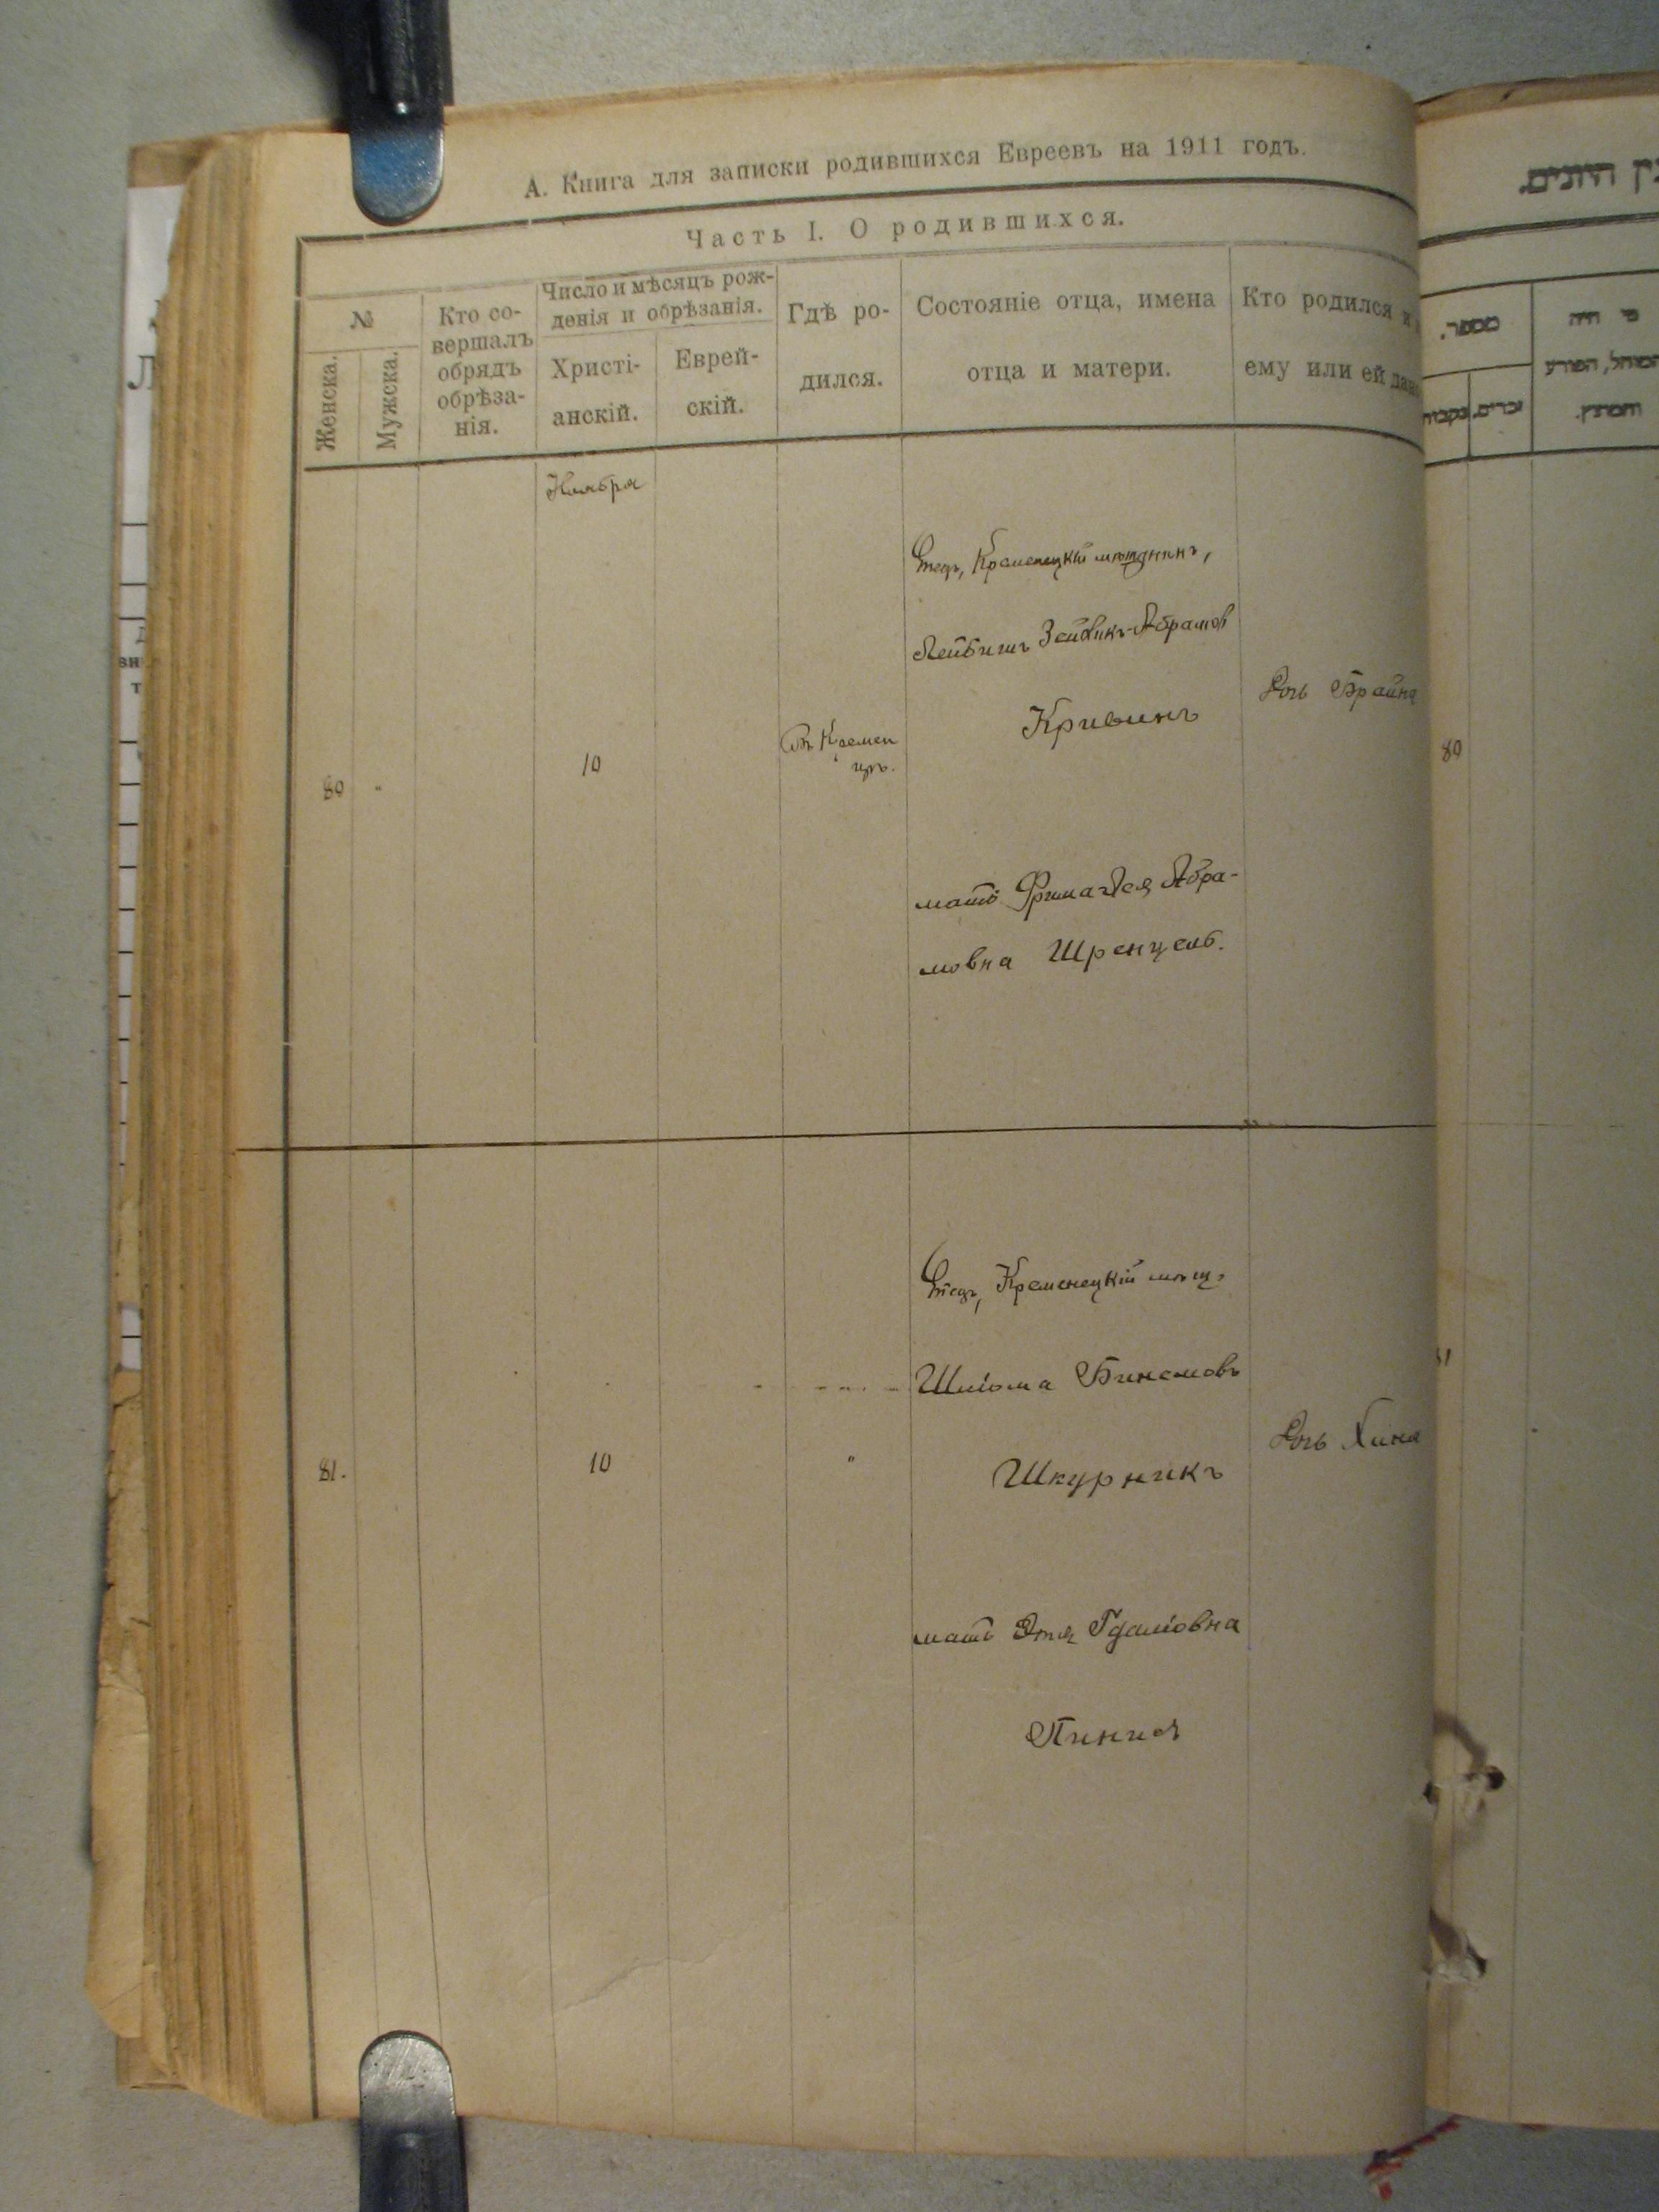 А. Книга для записки родившихся Евреевъ на 1911 годъ.
Часть I. О родившихся.
№
Женска.
Мужска.
Кто со-
вершалъ
обрядъ
обрѣза-
нія.
Число и мѣсяцъ рож-
денія и обрѣзанія.
Христі-
анскій.
Еврей-
скій.
Гдѣ ро-
дился.
Состояніе отца, имена
отца и матери.
Кто родился и
ему или ей дано
Ноября
80
10
Въ Кремен
цѣ.
Отецъ, Кременецкій мѣщанинъ,
Лейбишъ Зейвикъ-Абрамов
Кривинъ
мать Фрима Лея Абра-
мовна Шренцель.
Дочь Брайна
81.
10
"
Отецъ, Кременецкій мѣщ.
Шліома Бинемовъ
Шкурникъ
мать Этя Гдаліовна
Дочь Хина
היונים.
מספר.
זכרים.
נקבות
מי היה
המוהל, הפורע
והמוצץ.
80